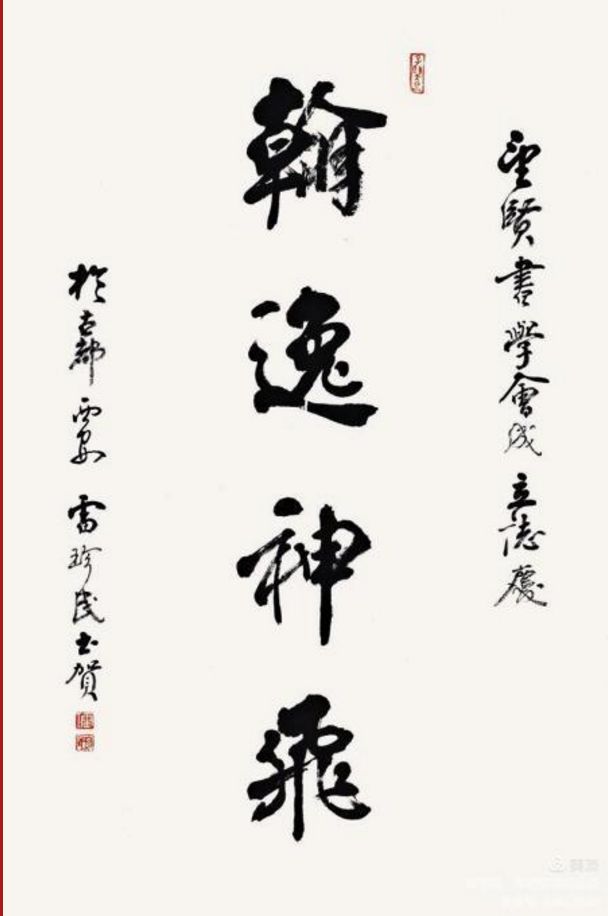 聖賢書學會成立誌慶
翰逸神飛
於古都西安 雷珍民書賀